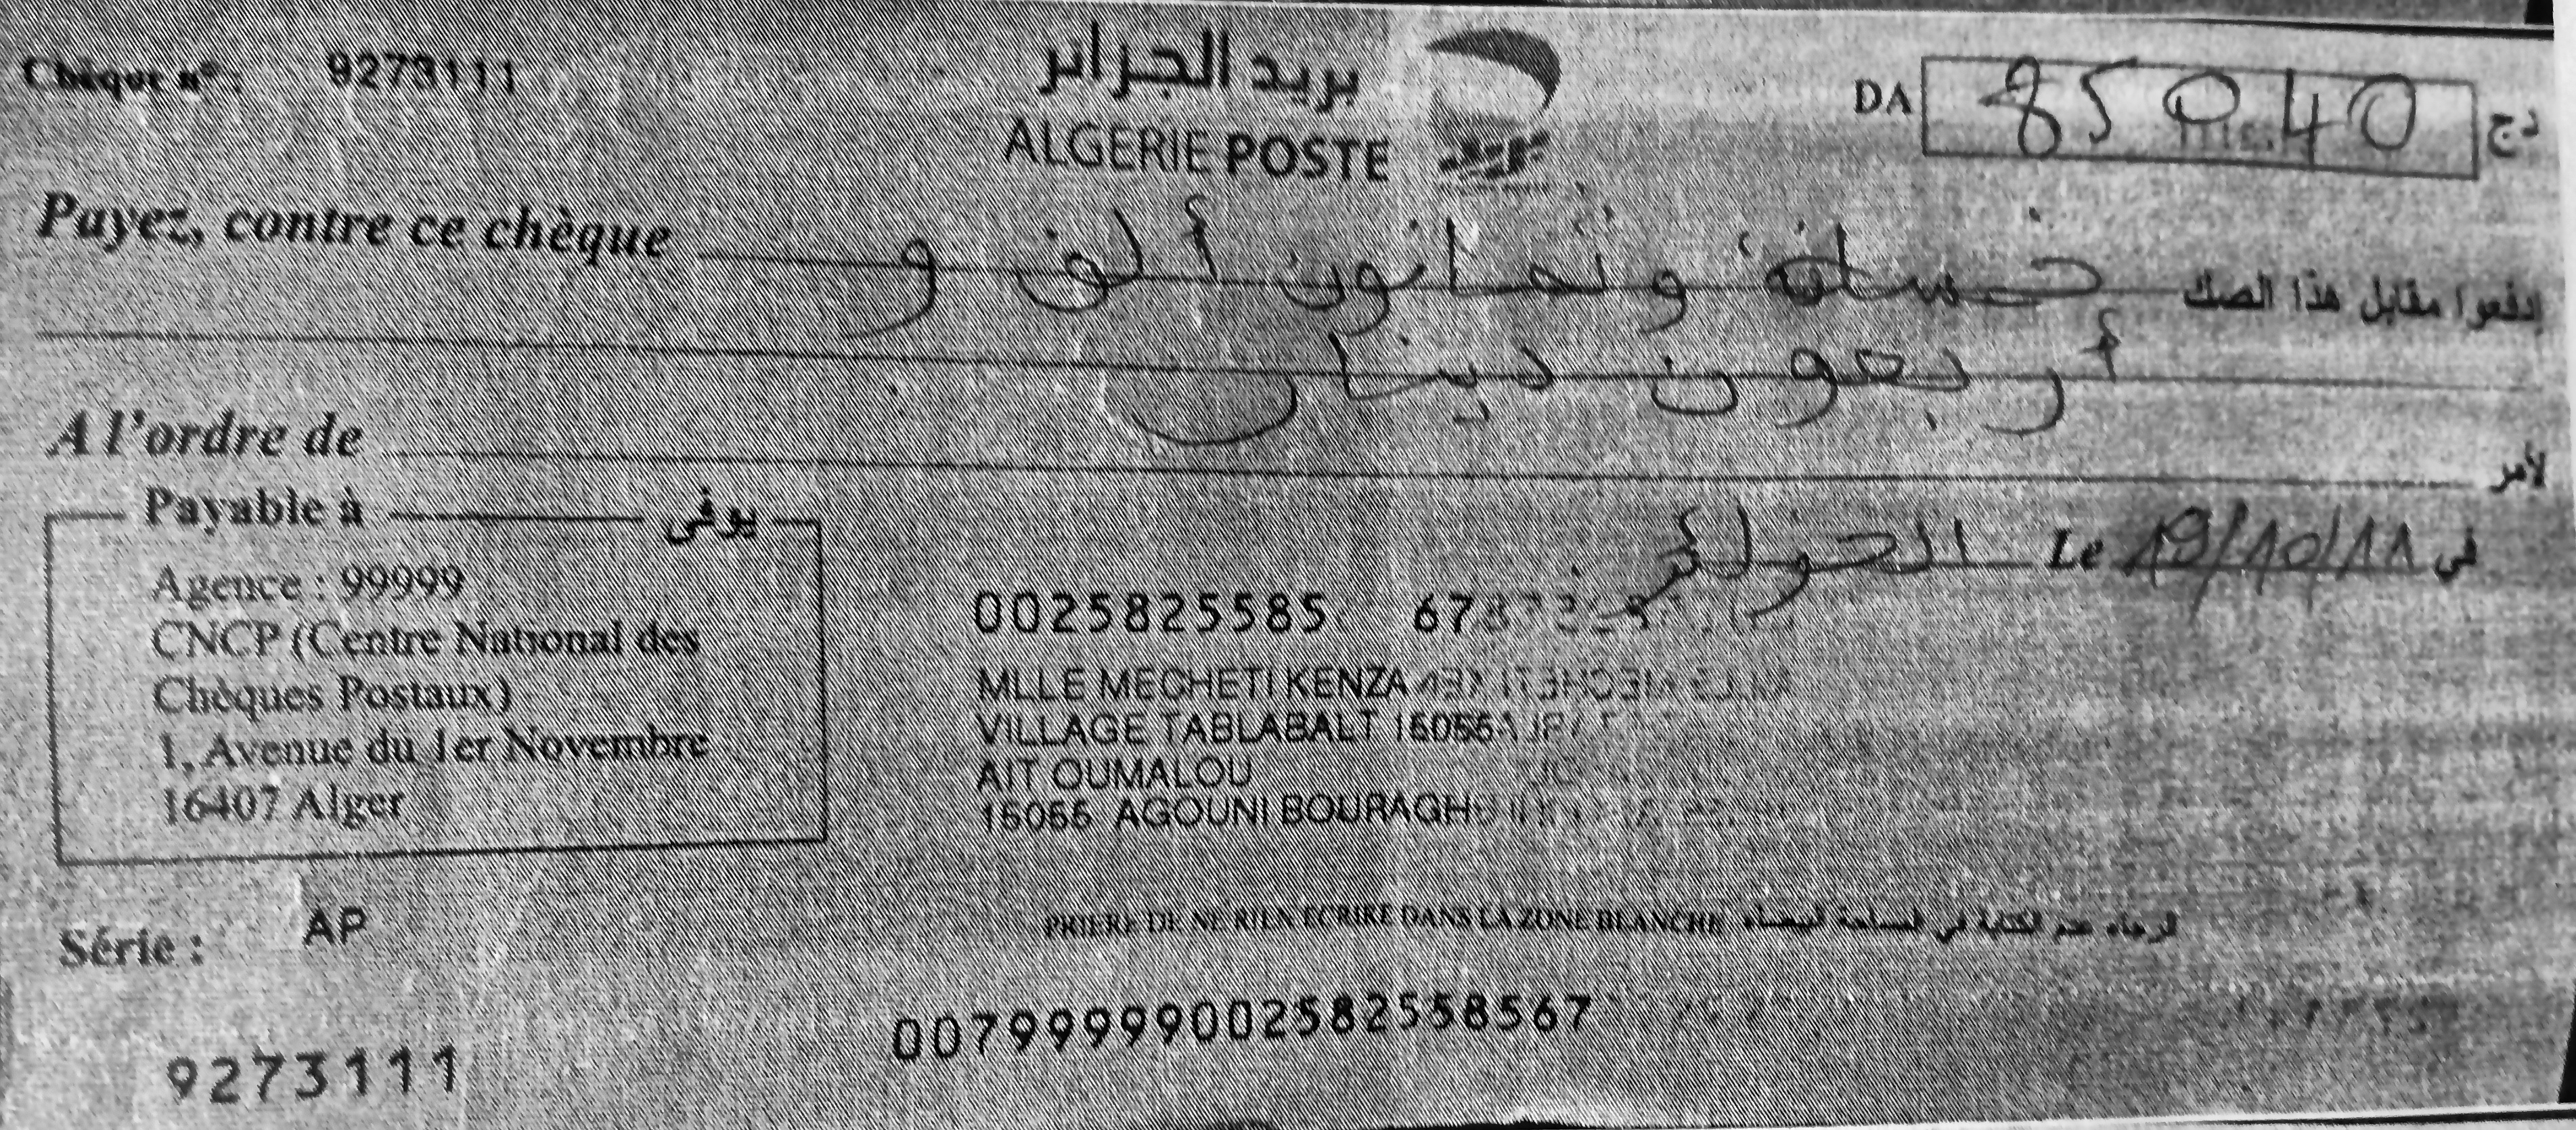 Chèque n° : 9273111
بريد الجزائر
ALGERIE POSTE
DA 85040 دج
Payez, contre ce chèque خمسة و ثمانون ألف و إدفعوا مقابل هذا الصك
أربعون دينار
A l'ordre de لأمر
Payable à يوفى
الجزائر Le 19/10/11 في
Agence : 99999
CNCP (Centre National des
Chèques Postaux)
1, Avenue du 1er Novembre
16407 Alger
0025825585 67
MLLE MECHETI KENZA
VILLAGE TABLABALT 15055
AIT OUMALOU
15055 AGOUNI BOURAGH
Série : AP
PRIERE DE NE RIEN ECRIRE DANS LA ZONE BLANCHE الرجاء عدم الكتابة في المساحة البيضاء
9273111
00799999002582558567